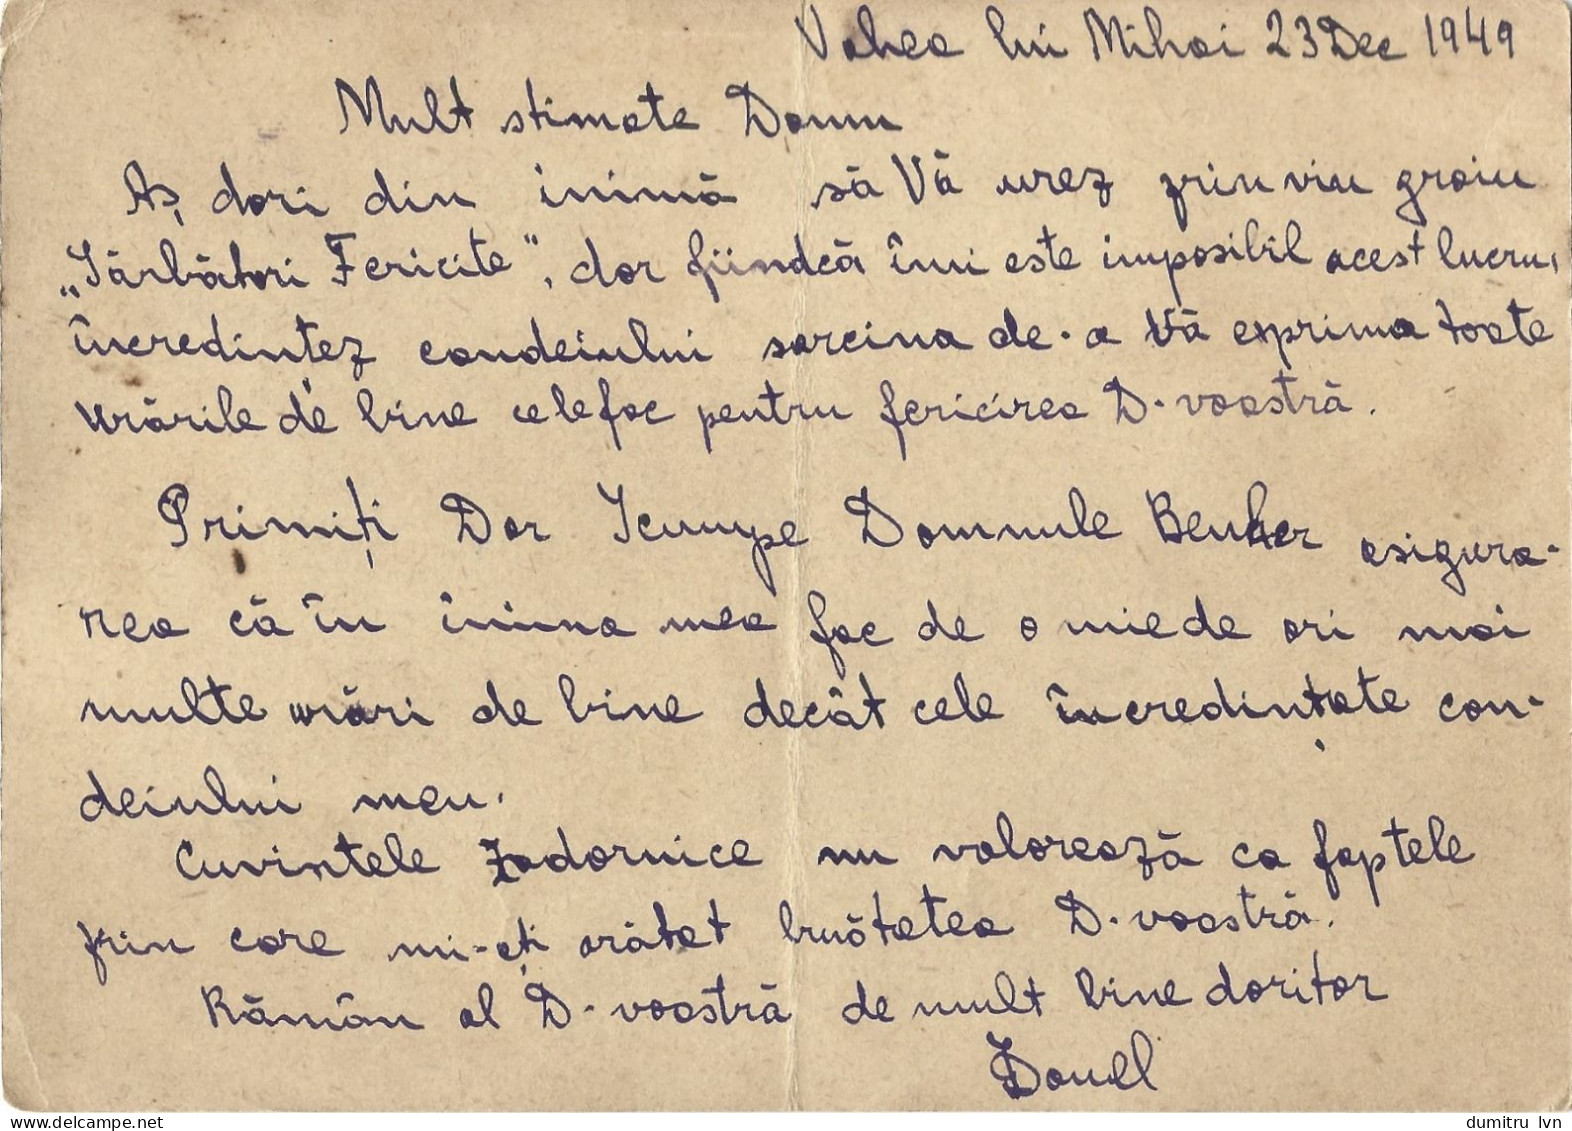 Valea lui Mihai 23 Dec 1949
Mult stimate Domn
Aș dori din inimă să Vă urez prin viu graiu
„Sărbători Fericite”, dar fiindcă îmi este imposibil acest lucru,
încredințez condeiului sarcina de-a Vă exprima toate
urările de bine ce le fac pentru fericirea D-voastră.
Primiți Dar Scumpe Domnule asigura-
rea că în inima mea fac de o mie de ori mai
multe urări de bine decât cele încredințate con-
deiului meu.
Cuvintele zadornice nu valorează ca faptele
prin care mi-ați arătat bunătatea D-voastră.
Rămân al D-voastră de mult bine doritor